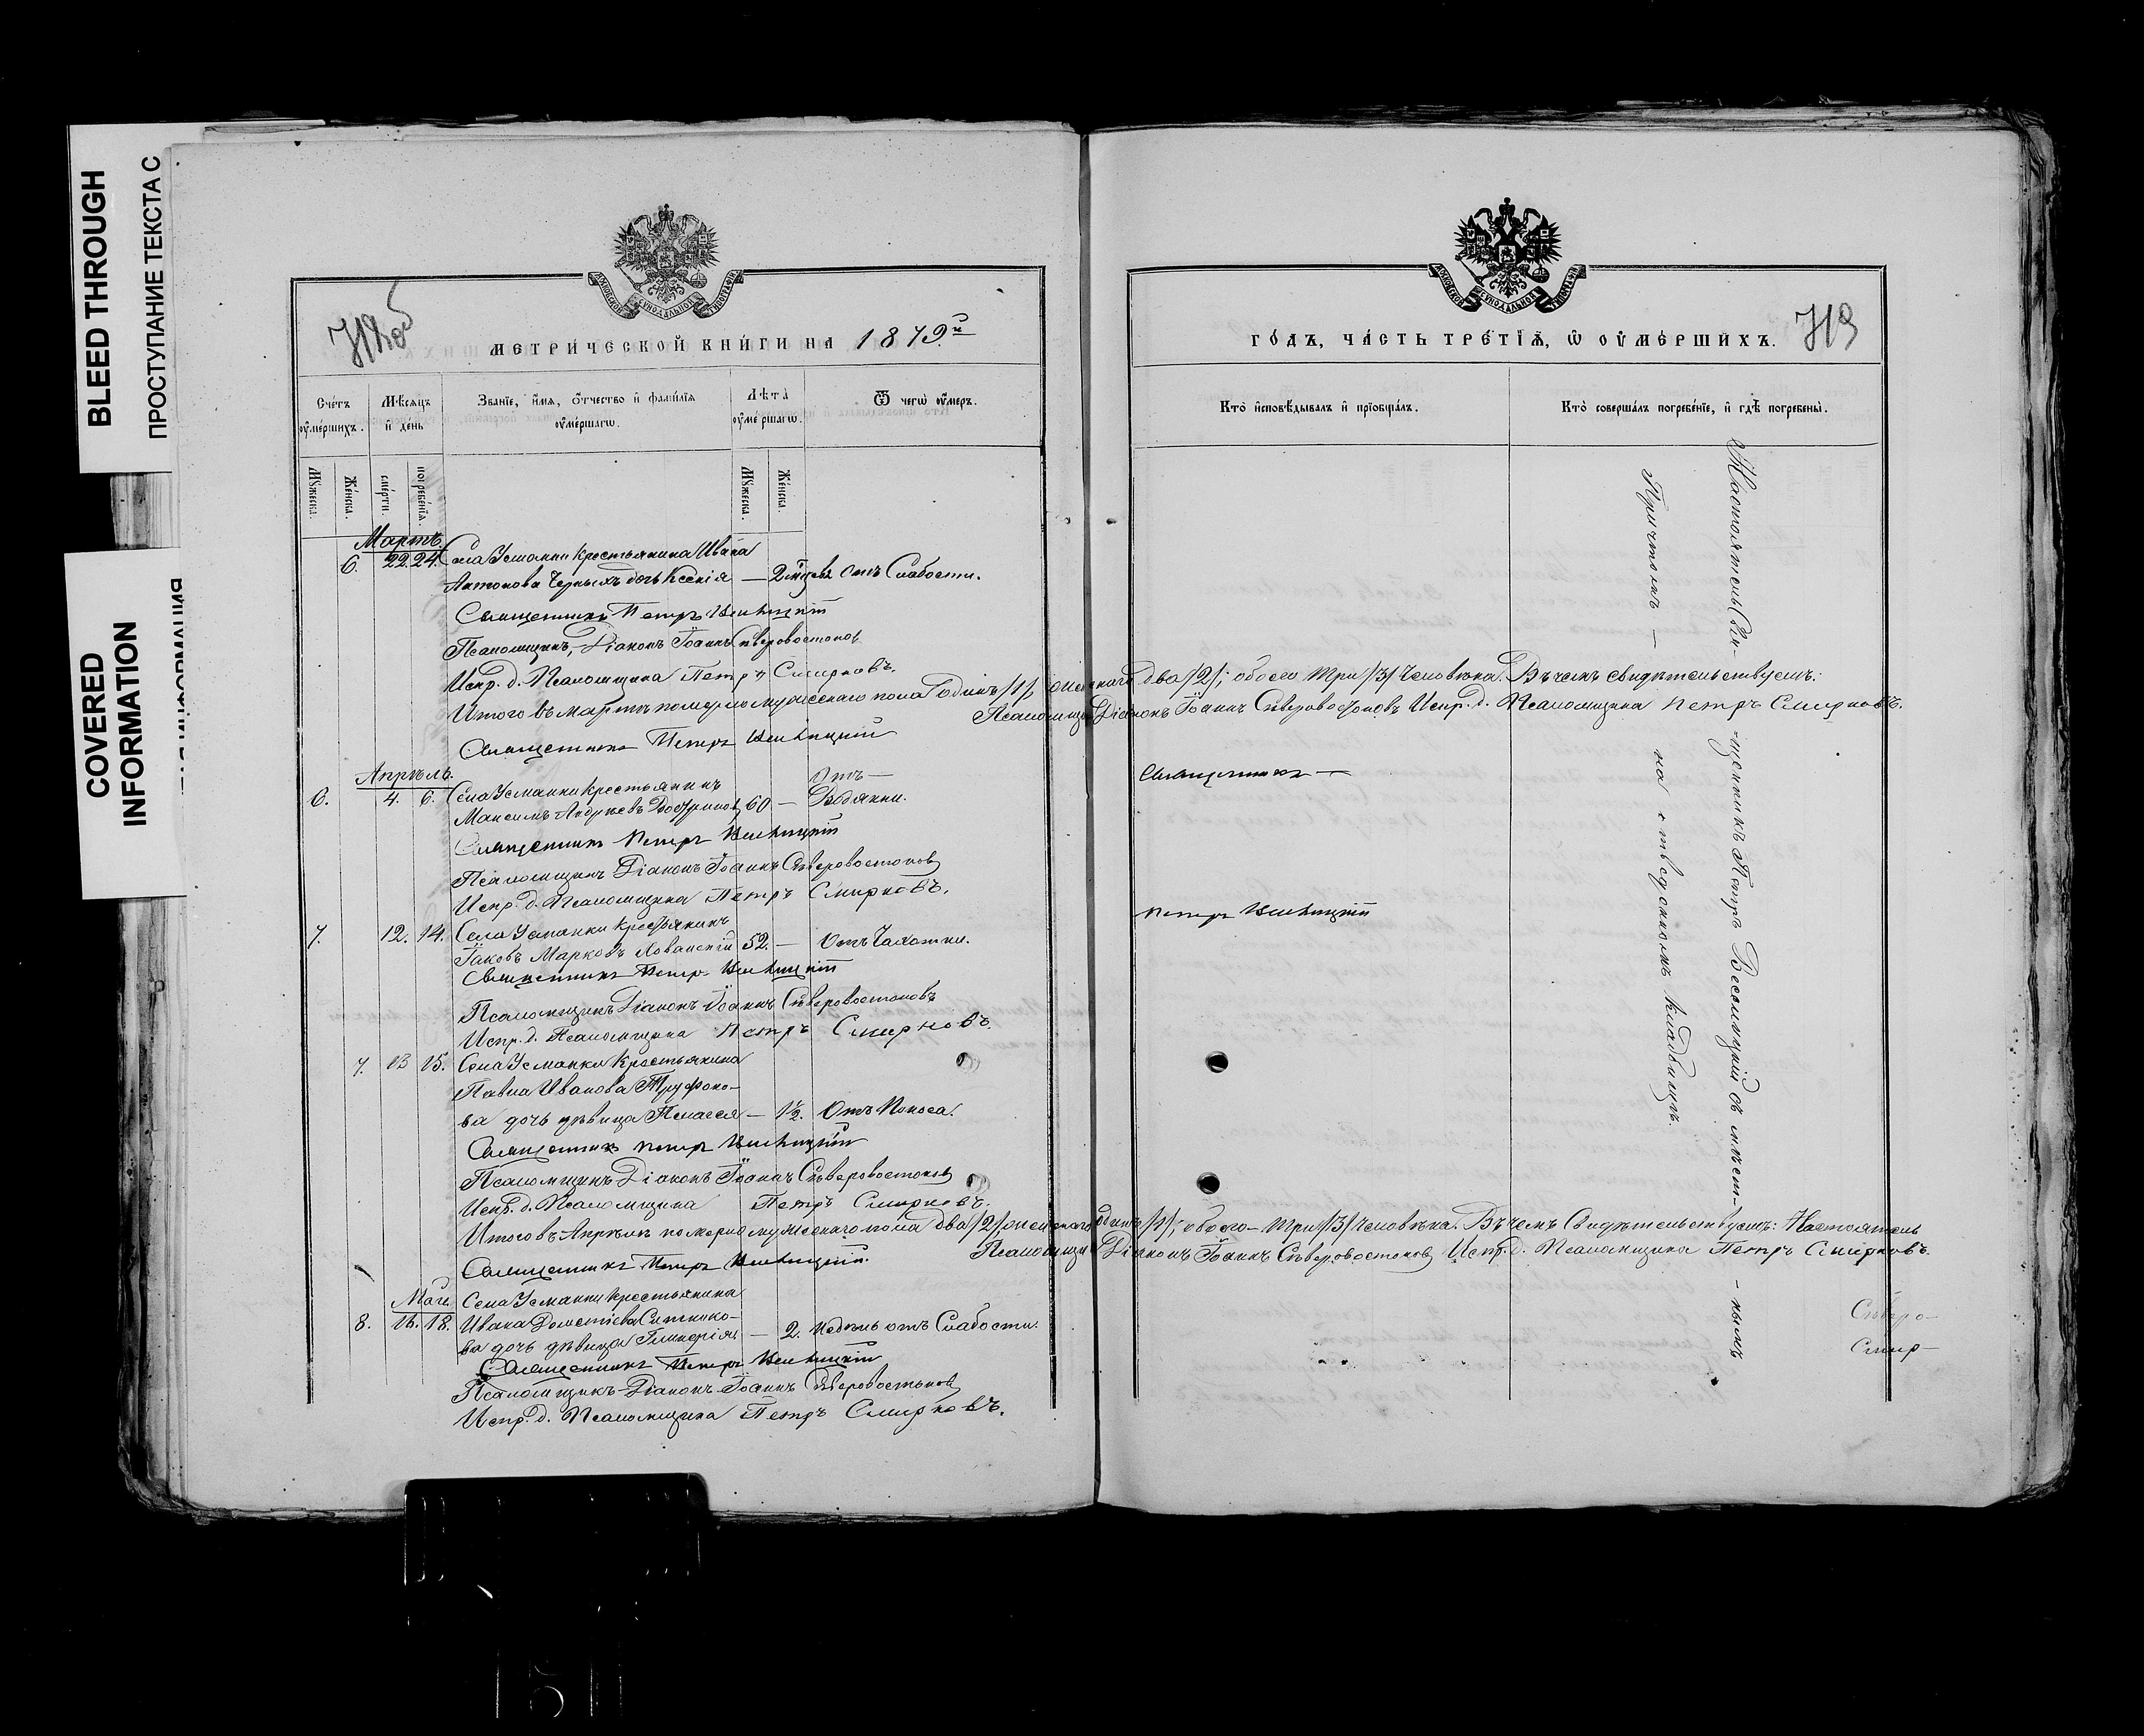 BLEED THROUGH
ПРОСТУПАНИЕ ТЕКСТА С
COVERED
INFORMATION
МОСКОВСКОЙ СУНОДАЛЬНОЙ ТИПОГРАФІИ
МЕТРИЧЕСКОЙ КНИГИ НА 1879й
Счетъ оумершихъ.
Мѣсяцъ и день
Званіе, имя, отчество и фамилія оумершагѡ.
Лѣта оумершагѡ.
Ѿ чегѡ оумеръ.
Мужеска.
Женска.
смерти.
погребенія.
Мужеска.
Женска.
Мартъ.
6. 22. 24. Села Усманки крестьянина Ивана
Антонова Черныхъ дочь Ксенія — 2 отъ Слабости.
Священникъ Петръ
Псаломщикъ, Діаконъ Іоаннъ Сѣверовостоковъ
Испр. д. Псаломщика Петръ Смирновъ.
Итого въ Мартѣ померло мужескаго пола одинъ /1/, женскаго два /2/; обоего три /3/ человѣка. Въ чемъ свидѣтельствуемъ:
Псаломщикъ Діаконъ Іоаннъ Сѣверовостоковъ Испр. д. Псаломщика Петръ Смирновъ.
Священникъ Петръ
Апрѣль.
6. 4. 6. Села Усманки крестьянинъ
Максимъ Андреевъ 60 — Отъ Водянки.
Священникъ Петръ
Псаломщикъ Діаконъ Іоаннъ Сѣверовостоковъ
Испр. д. Псаломщика Петръ Смирновъ.
7. 12. 14. Села Усманки крестьянинъ
Іаковъ Марковъ 52. — Отъ Чахотки.
Священникъ Петръ
Псаломщикъ Діаконъ Іоаннъ Сѣверовостоковъ
Испр. д. Псаломщика Петръ Смирновъ.
7. 13 15. Села Усманки крестьянина
Павла Иванова Труфоно-
ва дочь дѣвица Пелагея — 1½. Отъ Поноса.
Священникъ Петръ
Псаломщикъ Діаконъ Іоаннъ Сѣверовостоковъ
Испр. д. Псаломщика Петръ Смирновъ.
Итого въ Апрѣлѣ померло мужескаго пола два /2/ женскаго одинъ /1/; обоего — три /3/ человѣка. Въ чемъ Свидѣтельствуемъ: Настоятель
Псаломщикъ Діаконъ Іоаннъ Сѣверовостоковъ Испр. д. Псаломщика Петръ Смирновъ.
Священникъ Петръ
Май. Села Усманки крестьянина
8. 16. 18. Ивана Дометіева Ситнико-
ва дочь дѣвица Гликерія — 2. недѣль отъ Слабости.
Священникъ Петръ
Псаломщикъ Діаконъ Іоаннъ Сѣверовостоковъ
Испр. д. Псаломщика Петръ Смирновъ.
МОСКОВСКОЙ СУНОДАЛЬНОЙ ТИПОГРАФІИ
ГОДЪ, ЧАСТЬ ТРЕТІЯ, Ѡ ОУМЕРШИХЪ.
719
Кто исповѣдывалъ и пріобщалъ.
Кто совершалъ погребеніе, и гдѣ погребены.
Священникъ —
Петръ
Настоятель Свя-
щенникъ Петръ съ мѣст-
нымъ
Причтомъ —
на отведенномъ кладбищѣ.
Сѣверо-
Смир-